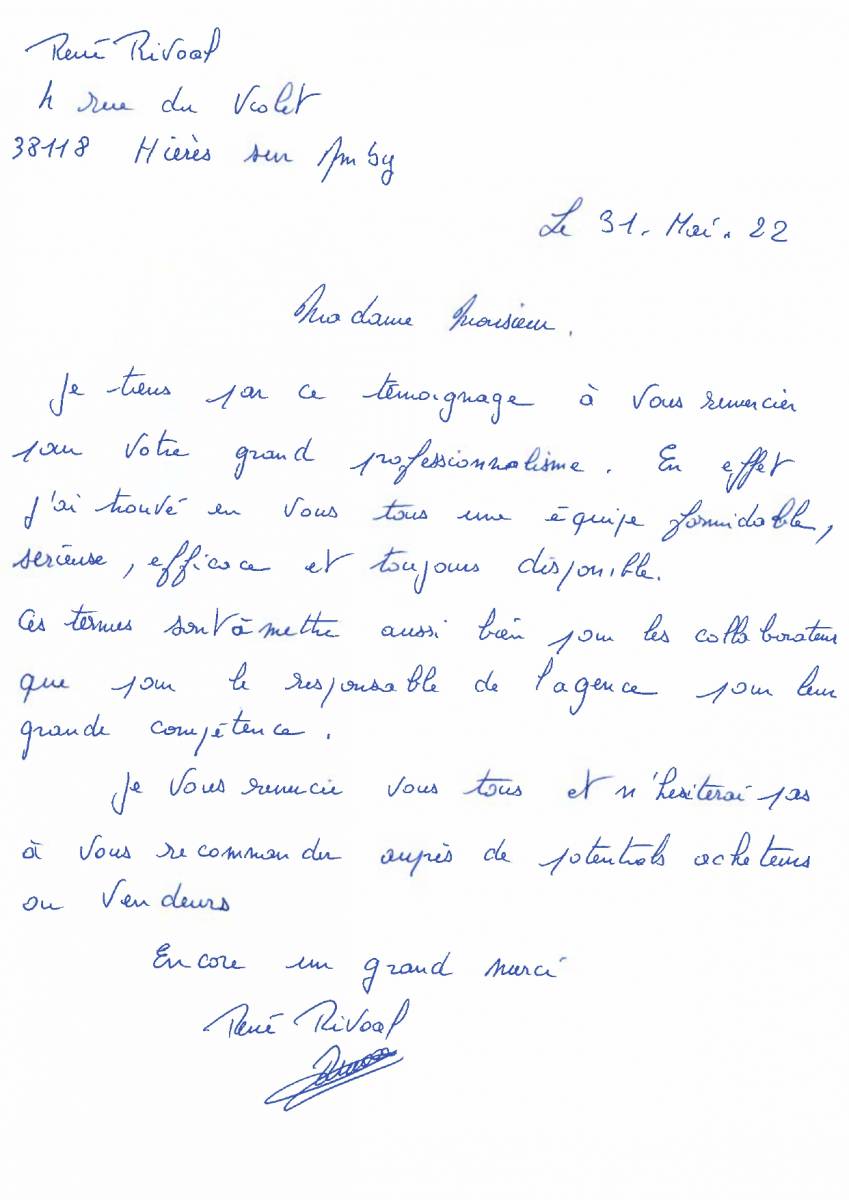 René Rivoal
4 rue du Violet
38118 Hières sur Amby
Le 31. Mai. 22
Madame Monsieur.
Je tiens par ce témoignage à vous remercier
pour votre grand professionnalisme. En effet
j'ai trouvé en vous tous une équipe formidable,
serieuse, efficace et toujours disponible.
Ces termes sont à mettre aussi bien pour les collaborateurs
que pour le responsable de l'agence pour leur
grande compétence.
Je vous remercie vous tous et n'hesiterai pas
à vous recommander auprès de potentials acheteurs
ou vendeurs
Encore un grand merci
René Rivoal